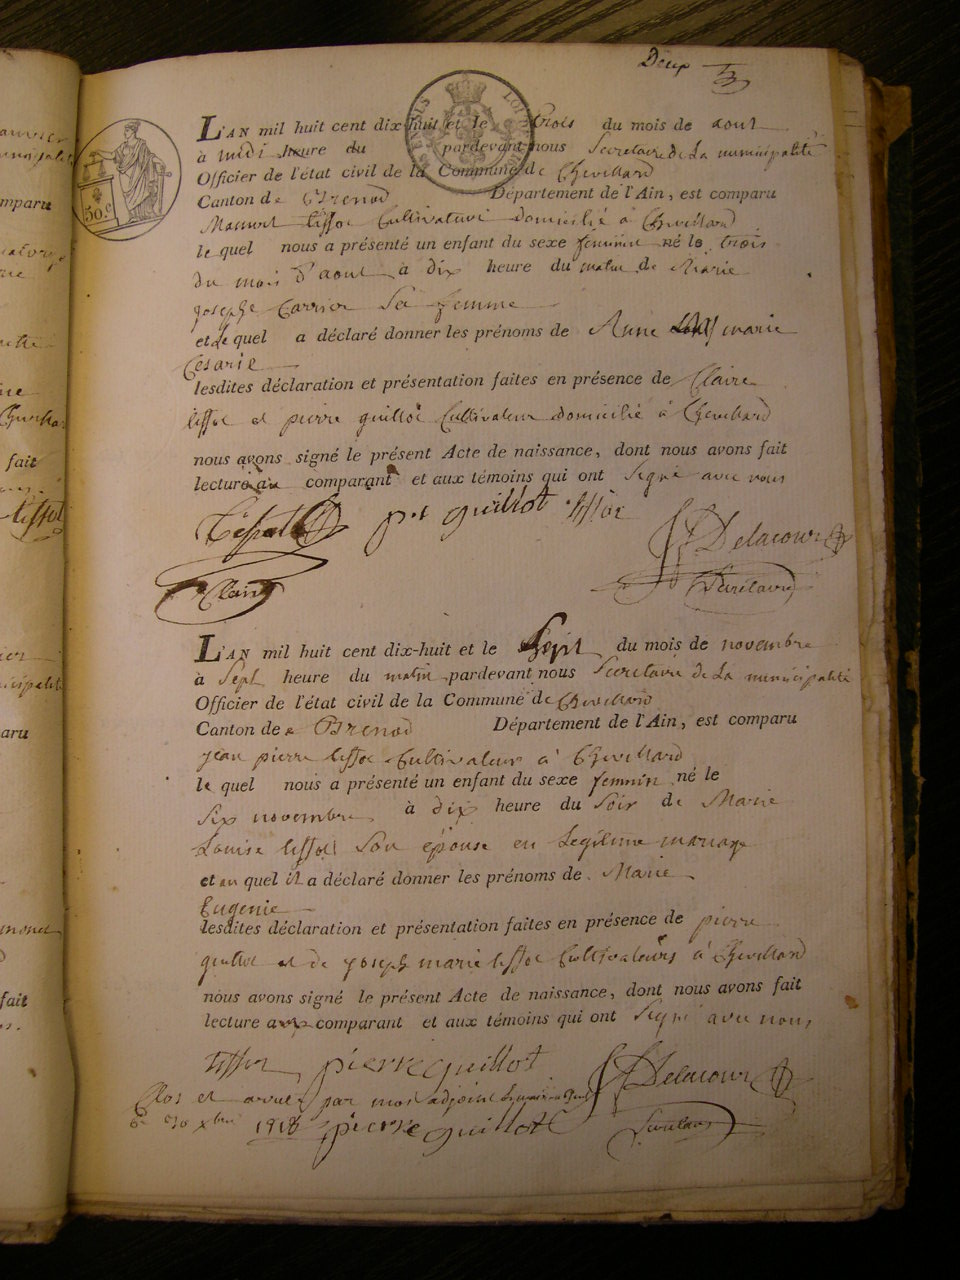 Deux
50.c
L'AN mil huit cent dix-huit et le trois du mois de aout
à midi heure du pardevant nous Secretaire de La municipalité
Officier de l'état civil de la Commune de Chevillard
Canton de Brenod Département de l'Ain, est comparu
tissot Cultivateur domicilié à Chevillard
le quel nous a présenté un enfant du sexe feminin né le trois
du mois d'aout à dix heure du matin de Marie
josephe Carrier Sa femme
et le quel a déclaré donner les prénoms de Anne marie
Cesarie
lesdites déclaration et présentation faites en présence de Claire
tissot et pierre guillot Cultivateur domicilié à Chevillard
nous avons signé le présent Acte de naissance, dont nous avons fait
lecture au comparant et aux témoins qui ont Signé avec nous
Tissot pre guillot tissot
Delacour
Clair Secretaire
L'AN mil huit cent dix-huit et le Sept du mois de novembre
à Sept heure du matin pardevant nous Secretaire de La municipalité
Officier de l'état civil de la Commune de Chevillard
Canton de Brenod Département de l'Ain, est comparu
jean pierre tissot Cultivateur à Chevillard
le quel nous a présenté un enfant du sexe feminin né le
Six novembre à dix heure du Soir de Marie
Louise tissot Son épouse en Legitime mariage
et au quel il a déclaré donner les prénoms de Marie
Eugenie
lesdites déclaration et présentation faites en présence de pierre
guillot et de joseph marie tissot Cultivateurs à Chevillard
nous avons signé le présent Acte de naissance, dont nous avons fait
lecture aux comparant et aux témoins qui ont Signé avec nous
tissot pierre guillot Delacour
Clos et arreté par moi adjoint
30 Xbre 1818 pierre guillot Secretaire